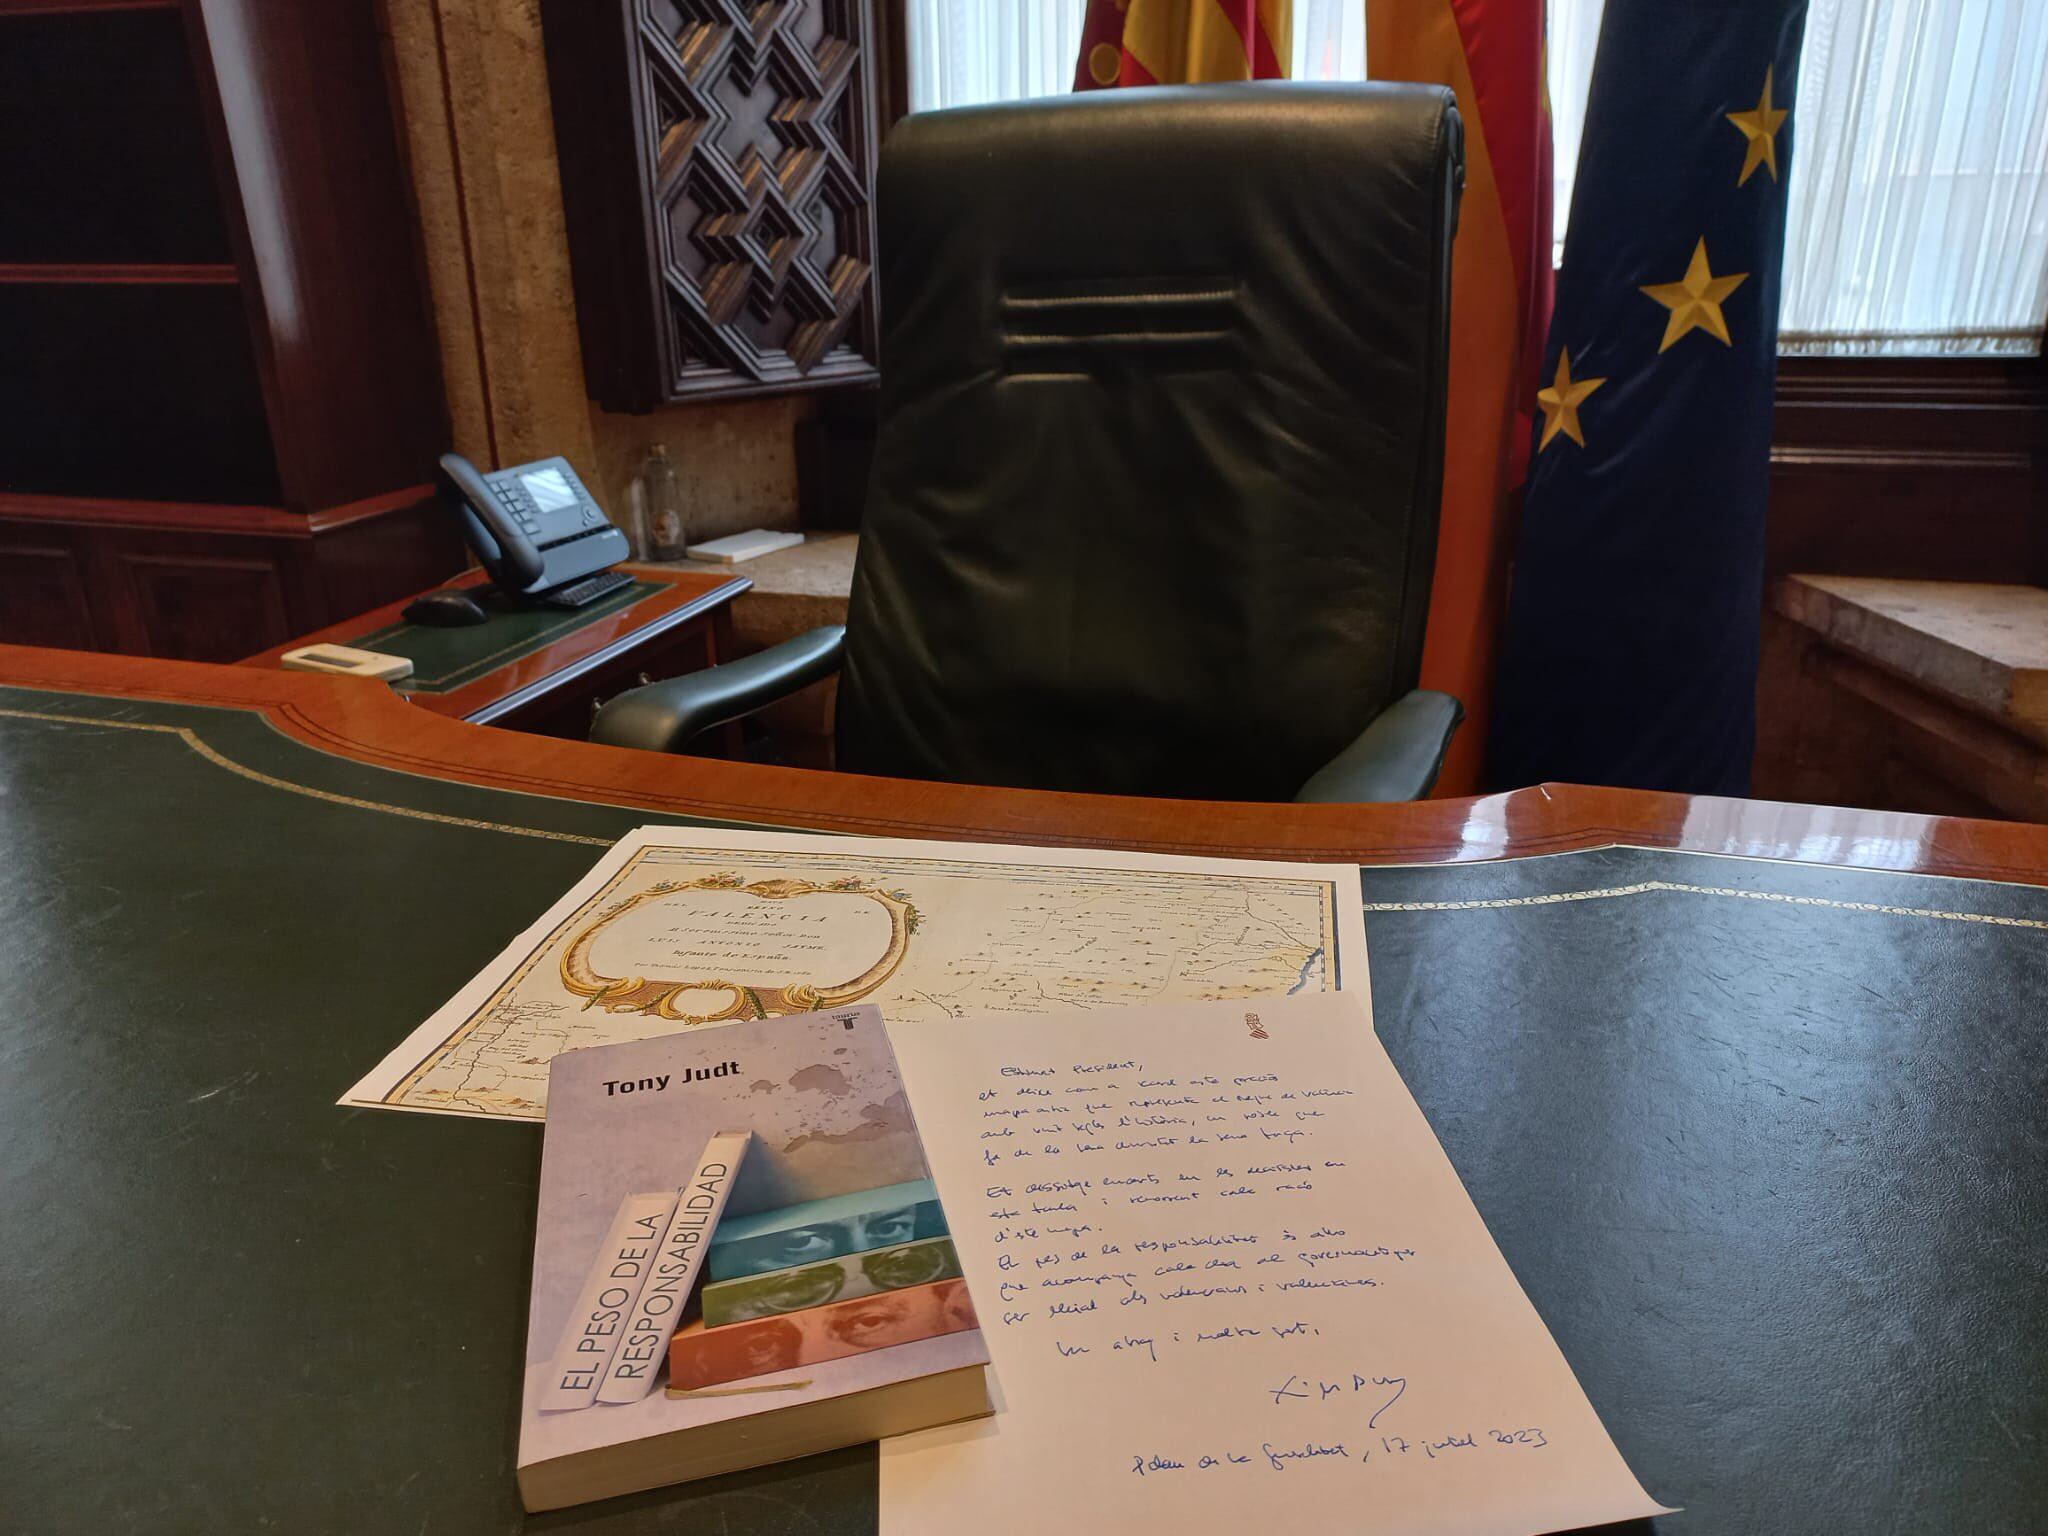 MAPA
DEL REYNO DE
VALENCIA
DEDICADO
Al Serenissimo Señor Don
LUIS ANTONIO JAYME.
Infante de España.
taurus
T
Tony Judt
EL PESO DE LA
RESPONSABILIDAD
Estimat President,
et deixe com a record este preciós
mapa antic que representa el Regne de València
amb vuit segles d'història, un poble que
fa de la seua diversitat la seua força.
Et desitge encerts en les decisions en
esta taula i recorrent cada racó
d'este mapa.
El pes de la responsabilitat és això
que acompanya cada dia al governant per
ser lleial als valencians i valencianes.
Un abraç i molta sort,
Ximo Puig
Palau de la Generalitat, 17 juliol 2023